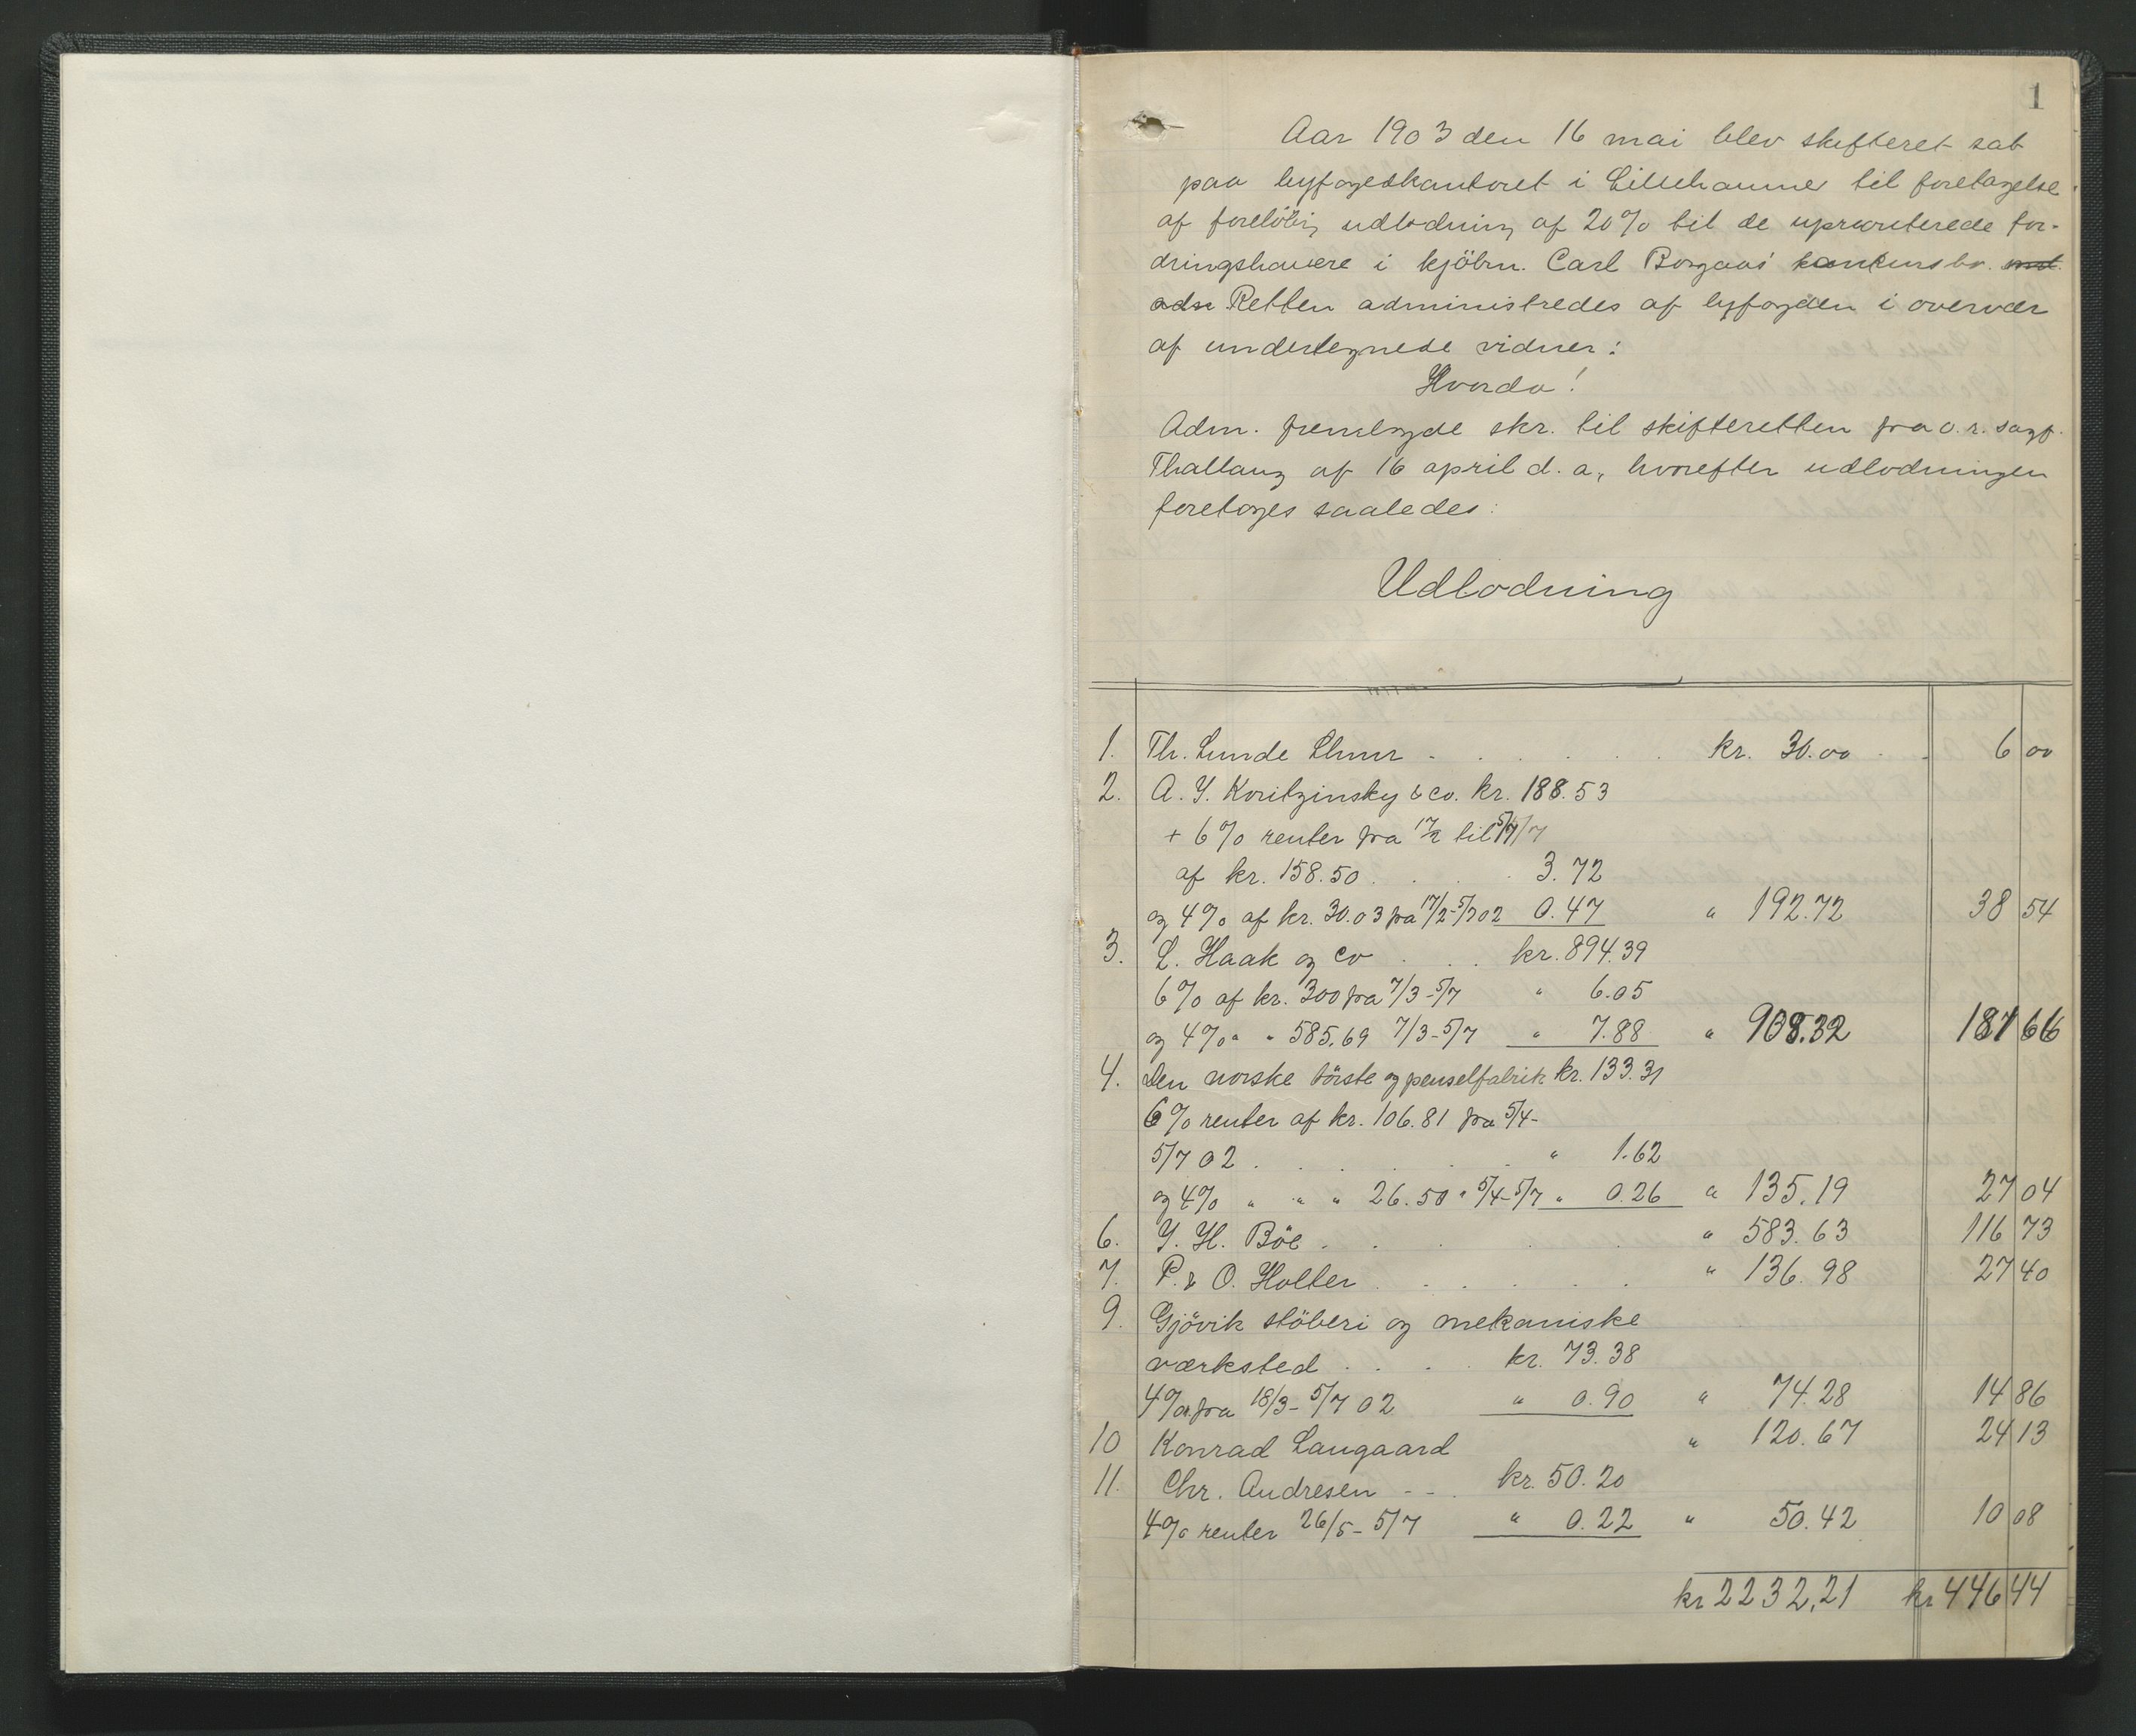 1
Aar 1903 den 16 mai blev skifteret sat
paa byfogedkontoret i Lillehammer til foretagelse
af foreløbig udlodning af 20% til de uprioriterede for-
dringshavere i kjöbm. Carl Borgaas' konkursbo.
Retten administredes af byfogden i overvær
af undertegnede vidner:
Hvorda!
Adm. fremlagde skr. til skifteretten fra o.r. sagf.
Thallaug af 16 april d. a., hvorefter udlodningen
foretoges saaledes:
Udlodning
1. Th. Lunde Lhmr . . . . . . kr. 30.00 . . 6 00
2. A. Y. Koritzinsky & co. kr. 188.53
+ 6% renter fra 17/2 til 5/7
af kr. 158.50 . . . 3.72
og 4% af kr. 30.03 fra 17/2-5/7 02 0.47 " 192.72 38 54
3. L. Haak og Co . . . kr. 894.39
6% af kr. 300 fra 7/3-5/7 " 6.05
og 4% " " 585,69 7/3-5/7 " 7.88 " 908.32 181 66
4. Den norske börste og penselfabrik kr. 133.31
6% renter af kr. 106.81 fra 5/4-
5/7 02 . . . . . . " 1.62
og 4% " " " 26.50 " 5/4-5/7 " 0.26 " 135.19 27 04
6. Y. H. Böe . . . . . " 583.63 116 73
7. P. & O. Holter . . . . . . " 136.98 27 40
9. Gjövik stöberi og mekaniske
værksted . . . . kr. 73.38
4% fra 18/3-5/7 02 " 0.90 " 74.28 14 86
10 Konrad Langaard " 120.67 24 13
11. Chr. Andresen - - . kr. 50.20
4% renter 26/5-5/7 " 0.22 " 50.42 10 08
kr 2232,21 kr 446 44